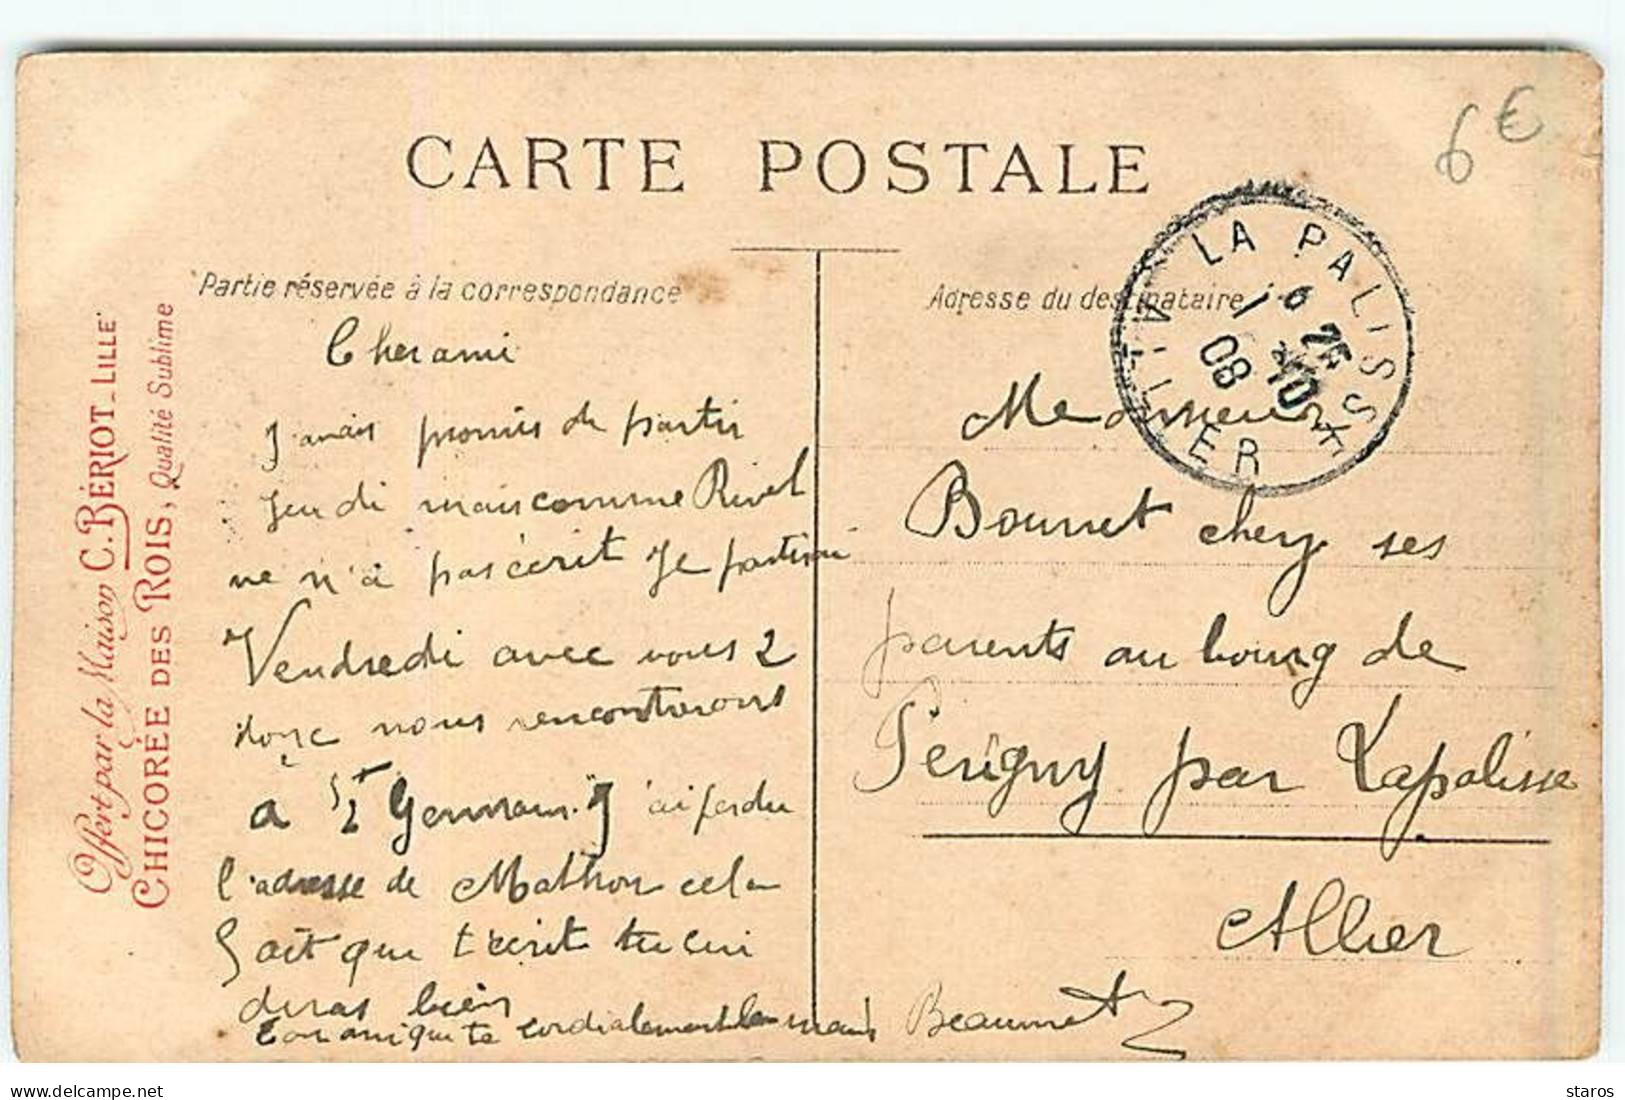 CARTE POSTALE
6 €
Partie réservée à la correspondance
Cher ami
J'avais promis de partir
jeudi mais comme Rivel
ne n'a pas écrit je partirai
Vendredi avec vous 2
donc nous rencontrerons
à St Germain. J'ai perdu
l'adresse de Mathon cela
fait que t'écrit tu lui
diras bien
Ton ami qui te cordialement la main
Beaumet
Adresse du destinataire
LA PALISSE
ALLIER
1 10
08
Bonnet chez ses
parents au bourg de
Périgny par Lapalisse
Allier
Offert par la Maison C. BÉRIOT_LILLE
CHICORÉE DES ROIS, Qualité Sublime
delcampe.net
staros